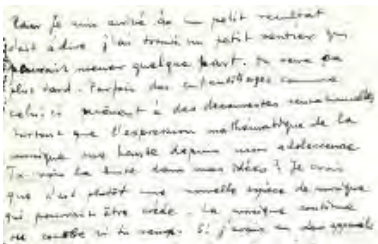 je suis arrivé à un petit résultat
c'est à dire j'ai trouvé un petit sentier qui
pourrait mener quelque part. tu verra ça
plus tard. Parfois des enfantillages comme
celui-ci mènent à des découvertes sensationnelles
surtout que l'expression mathématique de la
musique me hante depuis mon adolescence
Tu vois la suite dans mes idées? Je crois
que c'est plutôt une nouvelle espèce de musique
qui pourrait être créée. La musique continue
ou courbe si tu veux. Si j'avais eu des appareils